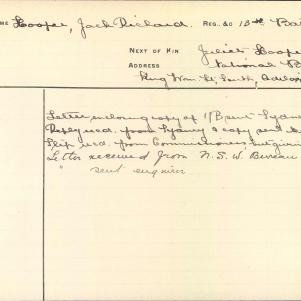 Cooper, Jack Richard. REG. &C 13th Ba
NEXT OF KIN Juliet Cooper
ADDRESS National B
King Wm. St, South, Adel
Letter enclosing copy of
Reply recd. from Sydney & copy sent
Slip recd. from Commissioner,
Letter received from N.S.W. Bureau
" sent enquirer